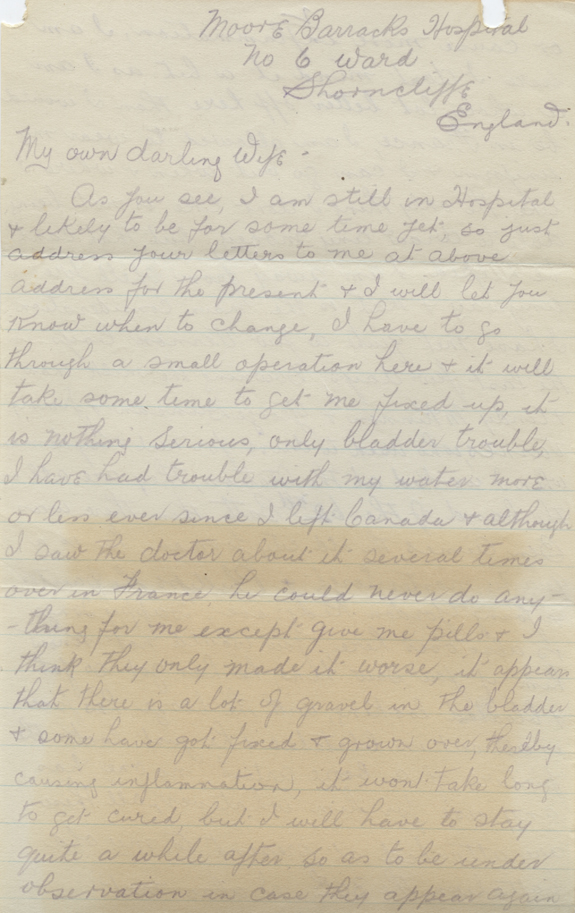 Moore Barracks Hospital
No 6 Ward
Shorncliffe
England.
My own darling Wife -
As you see, I am still in Hospital
& likely to be for some time yet, so just
address your letters to me at above
address for the present & I will let you
know when to change, I have to go
through a small operation here & it will
take some time to get me fixed up, it
is nothing serious, only bladder trouble,
I have had trouble with my water more
or less ever since I left Canada & although
I saw the doctor about it several times
over in France, he could never do any-
-thing for me except give me pills & I
think they only made it worse, it appears
that there is a lot of gravel in the bladder
& some have got fixed & grown over, thereby
causing inflamnation, it wont take long
to get cured, but I will have to stay
quite a while after so as to be under
observation in case they appear again